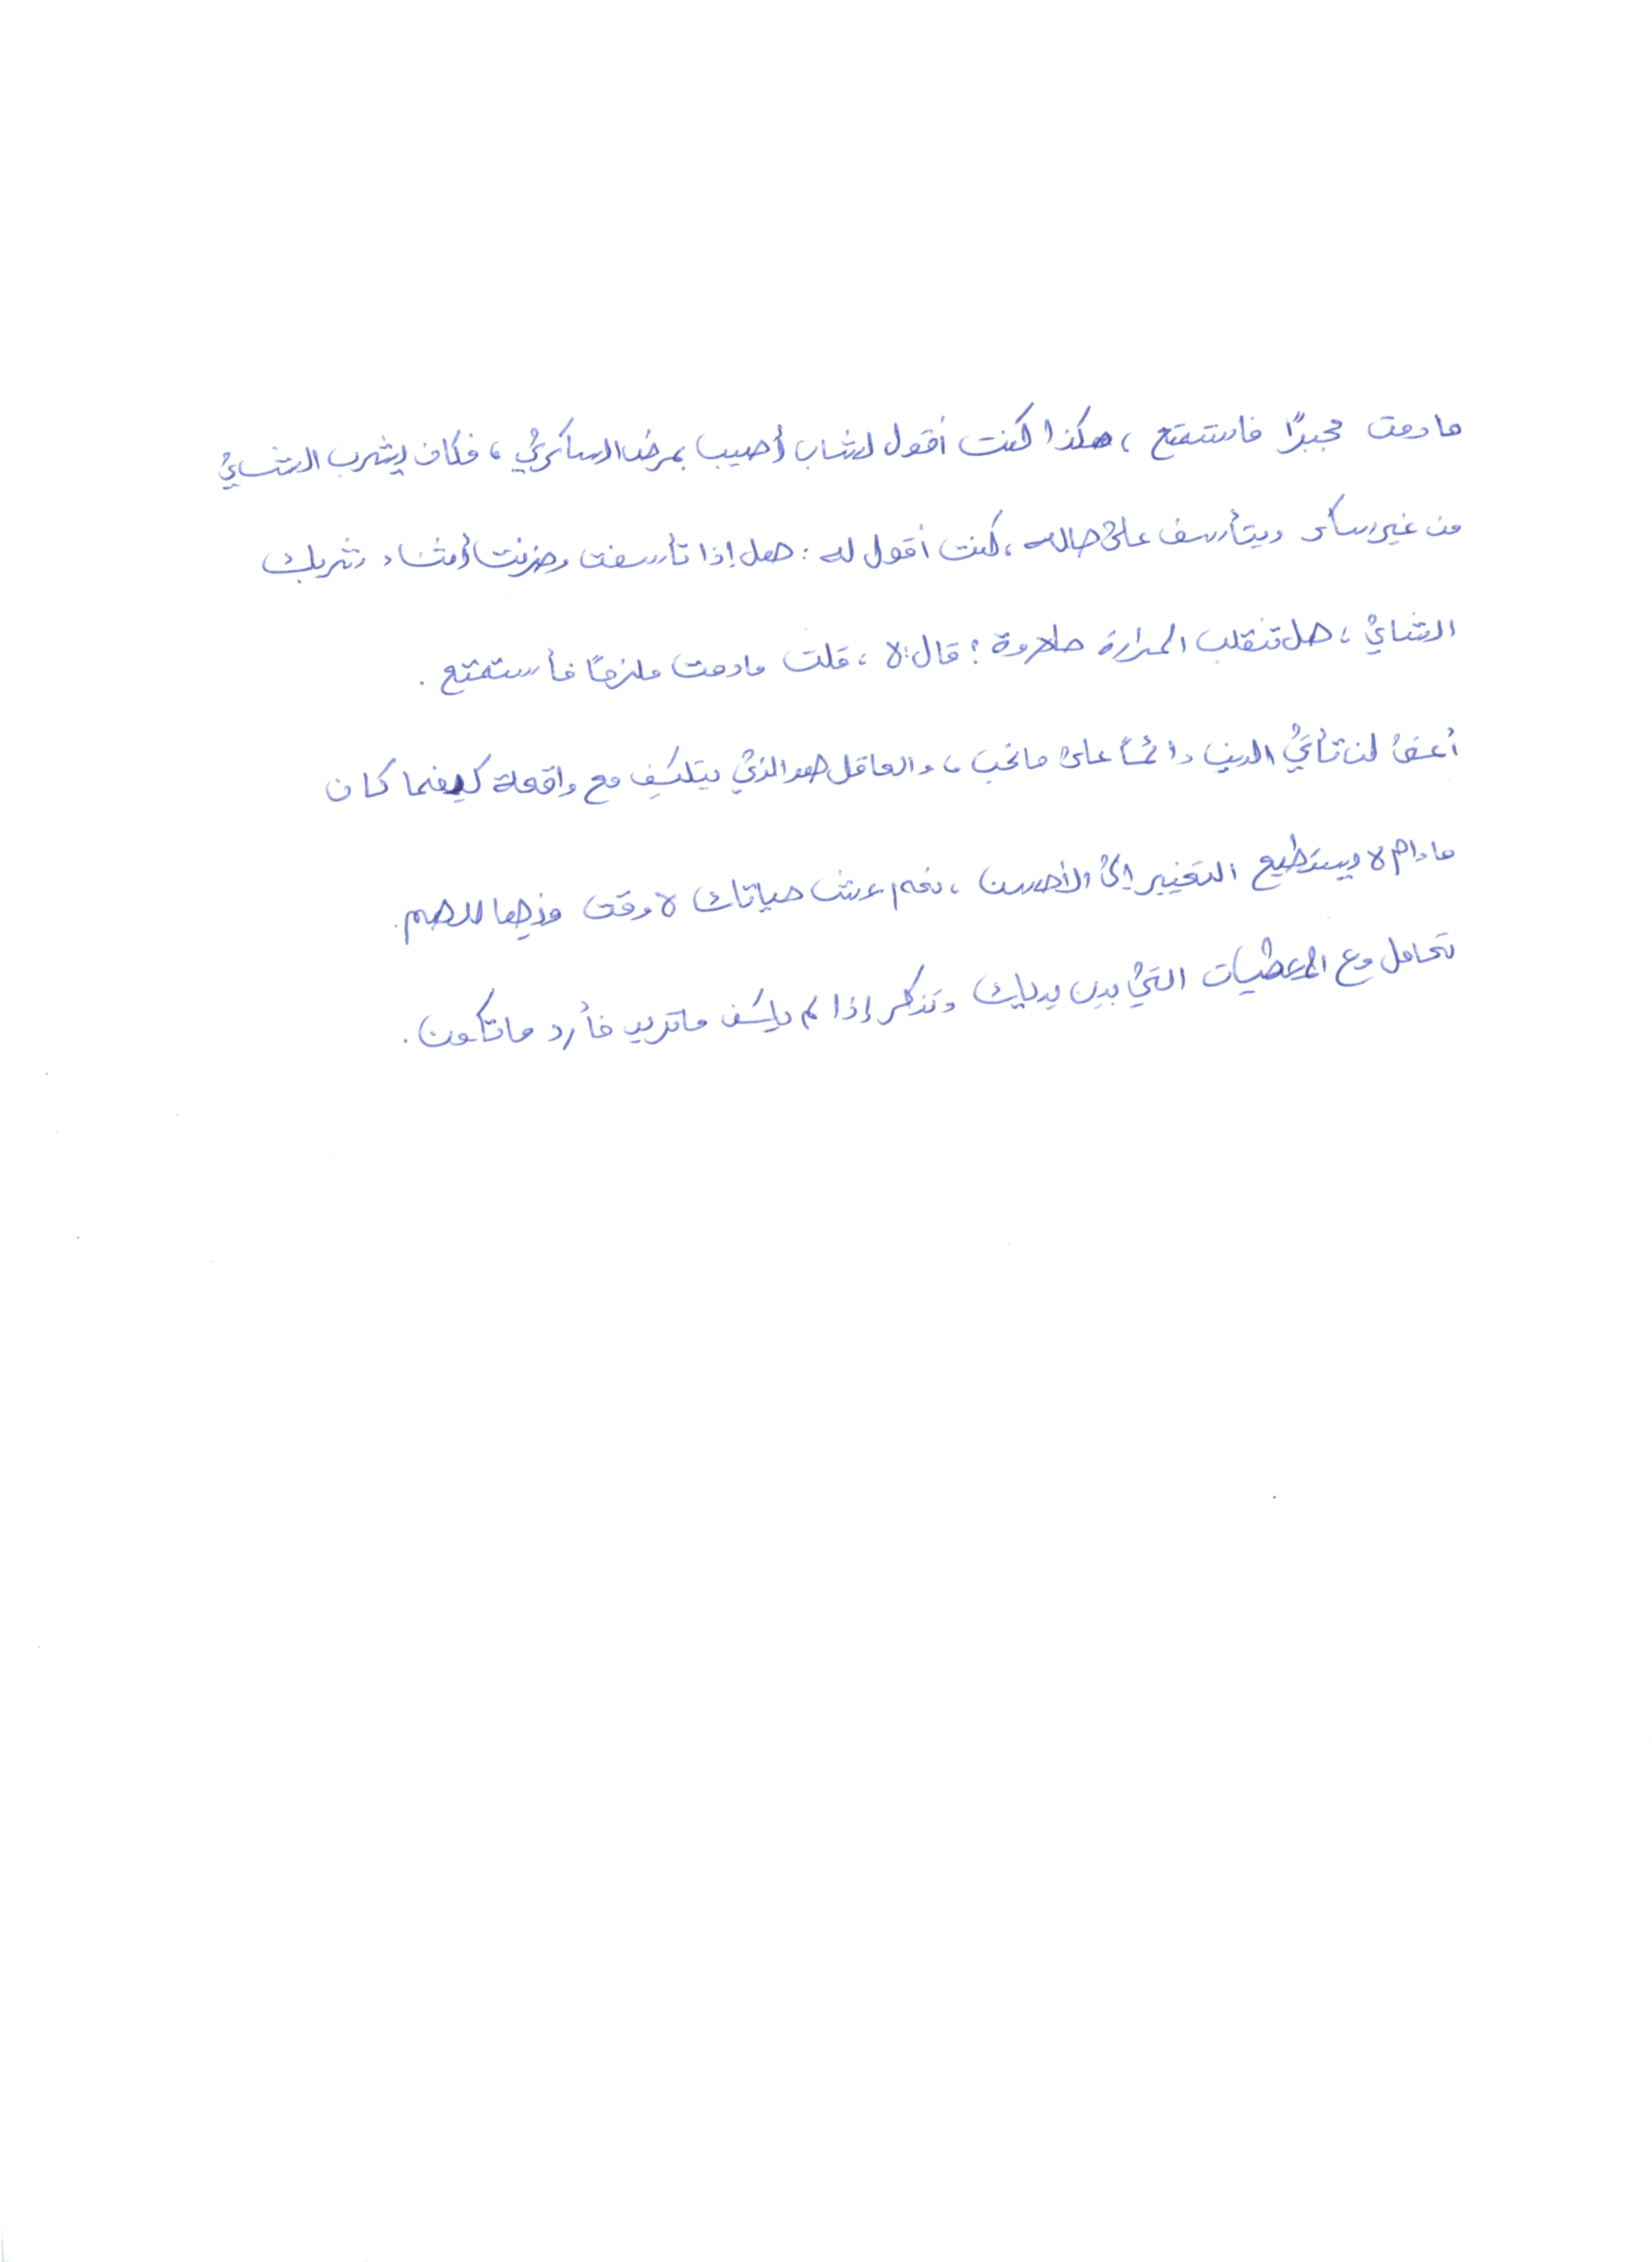 مادمت مجبرًا فاستمتع ، هكذا كنت أقول لشاب أصيب بمرض السكري ، فكان يشرب الشاي
من غير سكر ويتأسف على حاله ، كنت أقول له : هل إذا تأسفت وحزنت أثناء شربك
الشاي ، هل تنقلب المرارة حلاوة ؟ قال : لا ، قلت مادمت ملزمًا فأستمتع .
أعني لن تأتي الدنيا دائمًا على ما نحب ، والعاقل هو الذي يتكيف مع واقعة كيفما كان
مادام لا يستطيع التغيير إلى الأحسن ، نعم عش حياتك لا وقت فيها للهم .
تعامل مع المعطيات التي بين يديك وتذكر إذا لم يكن ما تريد فأرد ما تكون .